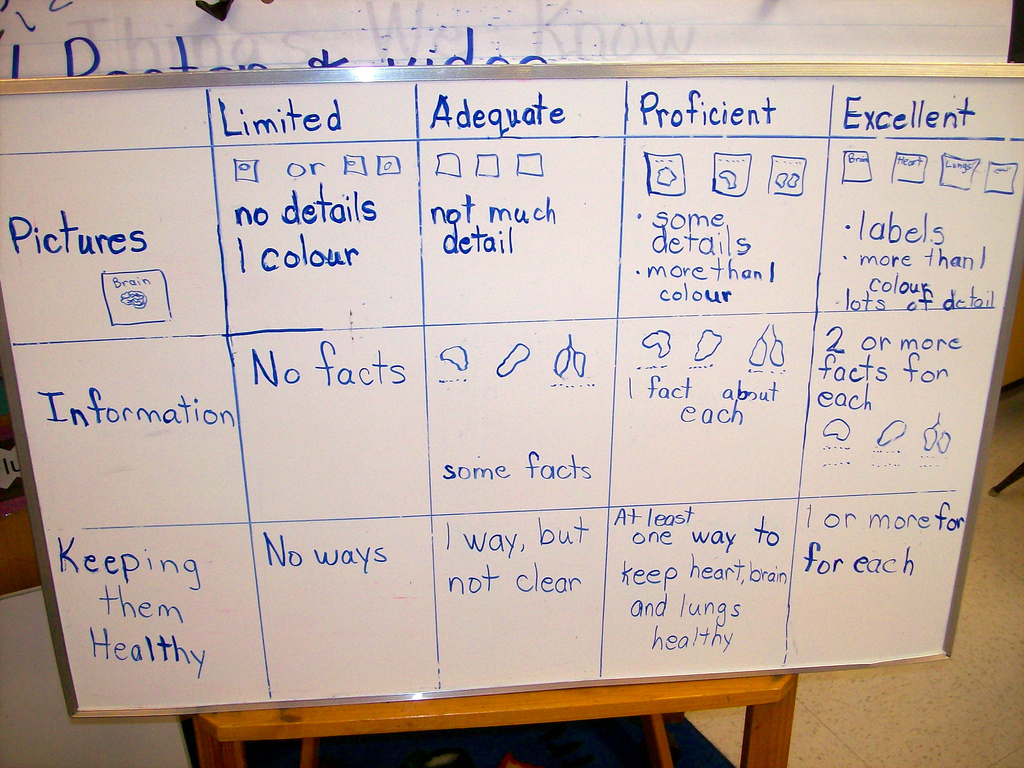 Things We Know
Poster & video
Limited
Adequate
Proficient
Excellent
Pictures
Brain
or
no details
1 colour
not much
detail
• some
details
• more than 1
colour
Brain
Heart
Lungs
• labels
• more than 1
colour
lots of detail
Information
No facts
some facts
1 fact about
each
2 or more
facts for
each
Keeping
them
Healthy
No ways
1 way, but
not clear
At least
one way to
keep heart, brain
and lungs
healthy
1 or more for
for each